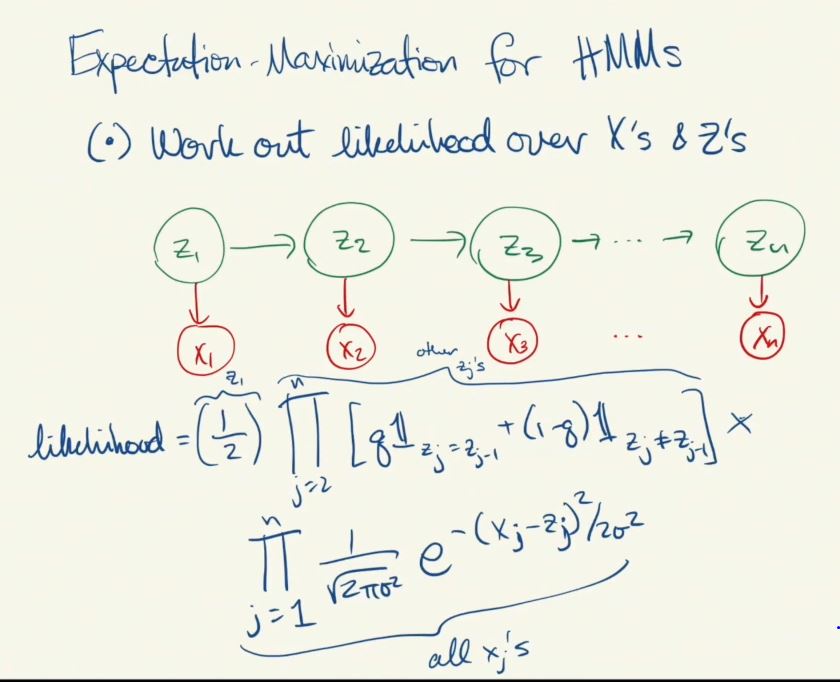 Expectation-Maximization for HMMs
(•) Work out likelihood over X's & Z's
Z₁ → Z₂ → Z₃ → ... → Zₙ
X₁ X₂ X₃ ... Xₙ
Z₁ other Zⱼ's
likelihood = (1/2) ∏ⱼ₌₂ⁿ [q𝟙_{zⱼ=zⱼ₋₁} + (1-q)𝟙_{zⱼ≠zⱼ₋₁}] ×
∏ⱼ₌₁ⁿ 1/√(2πσ²) e^{-(xⱼ-zⱼ)²/2σ²}
all xⱼ's